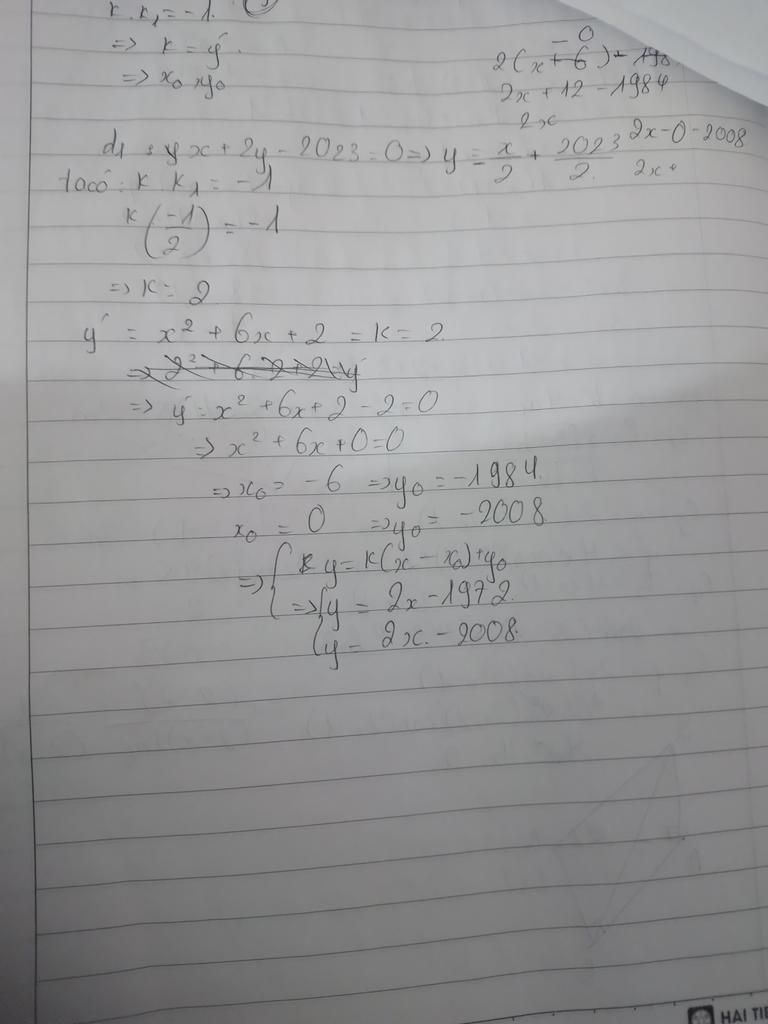 k.k₁ = -1.
=> k = y'.
=> x₀ y₀
- 0
2(x+6) - 198
2x + 12 - 1984
2x
d₁ : x + 2y - 2023 = 0 => y = x/2 + 2023/2.
2x - 0 - 2008
2x
ta có: k k₁ = -1
k(-1/2) = -1
=> k = 2
y' = x² + 6x + 2 = k = 2.
=> y' = x² + 6x + 2 - 2 = 0
=> x² + 6x + 0 = 0
=> x₀ = -6 => y₀ = -1984.
x₀ = 0 => y₀ = -2008
=> { y = k(x - x₀) + y₀
=> { y = 2x - 1972.
{ y = 2x - 2008.
HẢI TIẾ